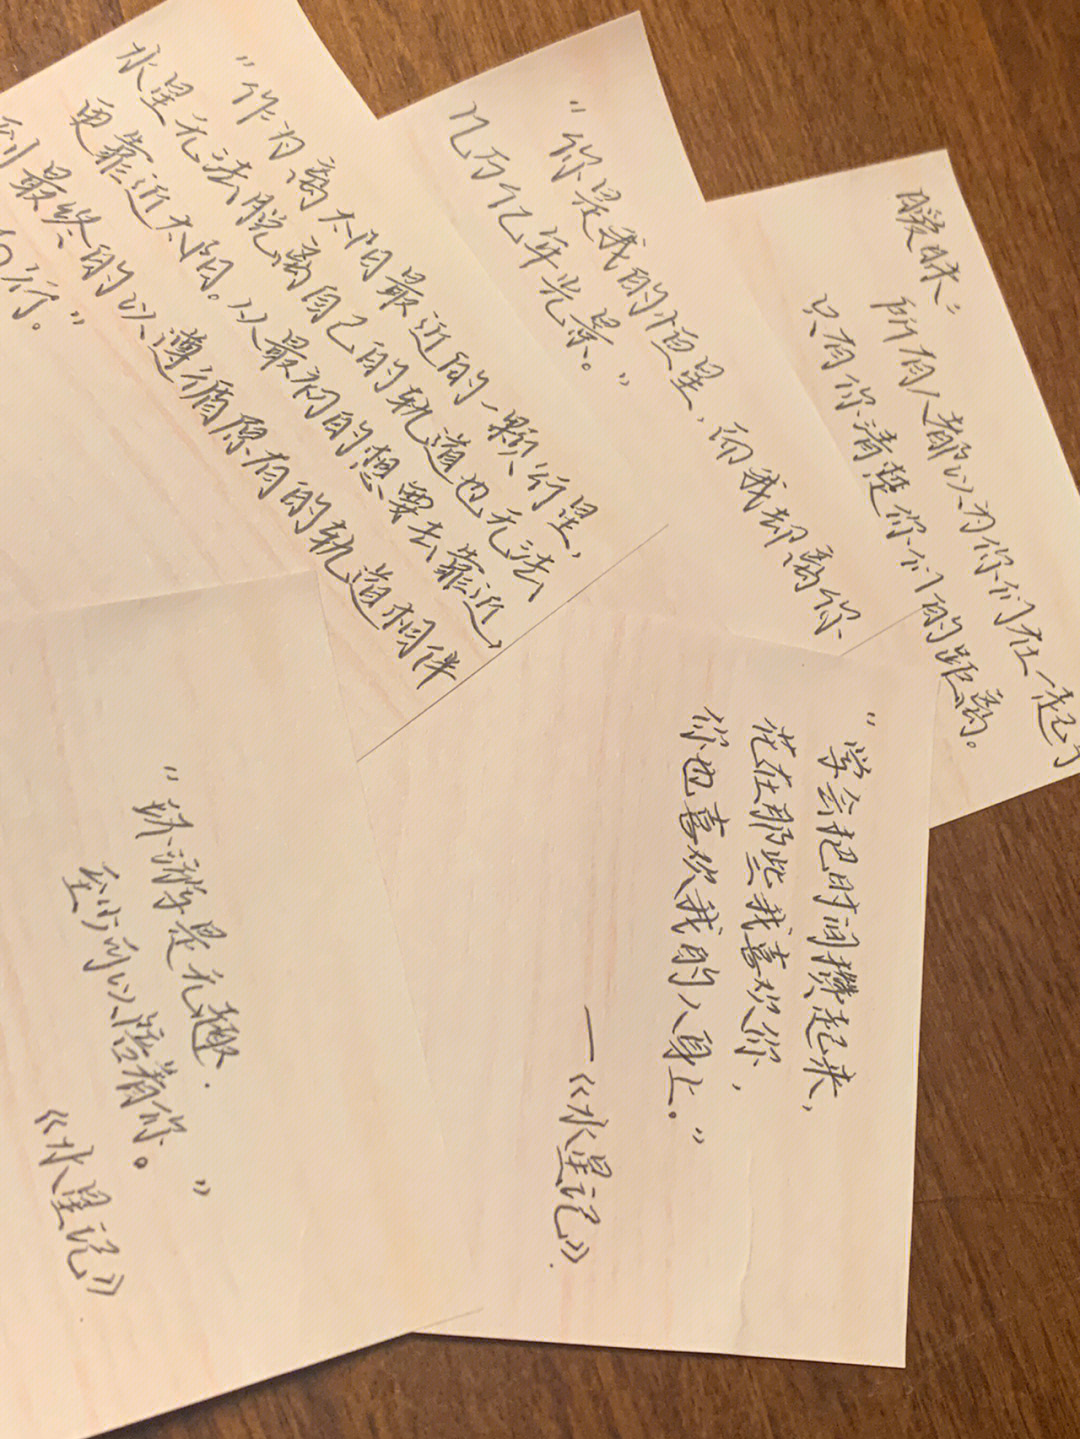 "作为离太阳最近的一颗行星，
水星无法脱离自己的轨道也无法
更靠近太阳。从最初的想要去靠近，
到最终的以遵循原有的轨道相伴
而行。"
"你是我的恒星，而我却离你
几万亿年光景。"
暧昧：
所有人都以为你们在一起了
只有你清楚你们的距离。
"学会把时间攒起来，
花在那些我喜欢你，
你也喜欢我的人身上。"
—《水星记》.
"环游是无趣.
至少可以陪着你。"
《水星记》